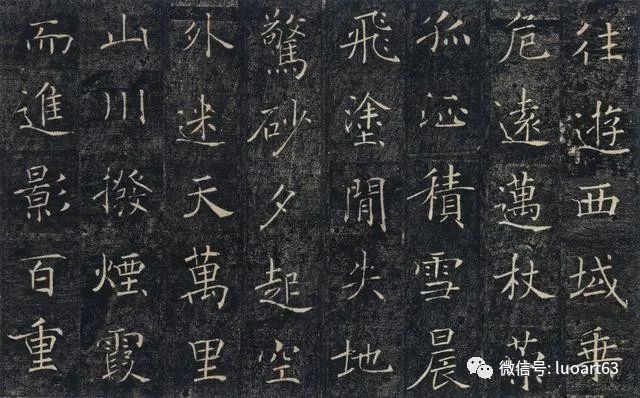 往遊西域乗
危遠邁杖策
孤征積雪晨
飛塗閒失地
驚砂夕起空
外迷天萬里
山川撥煙霞
而進影百重
微信号: luoart63